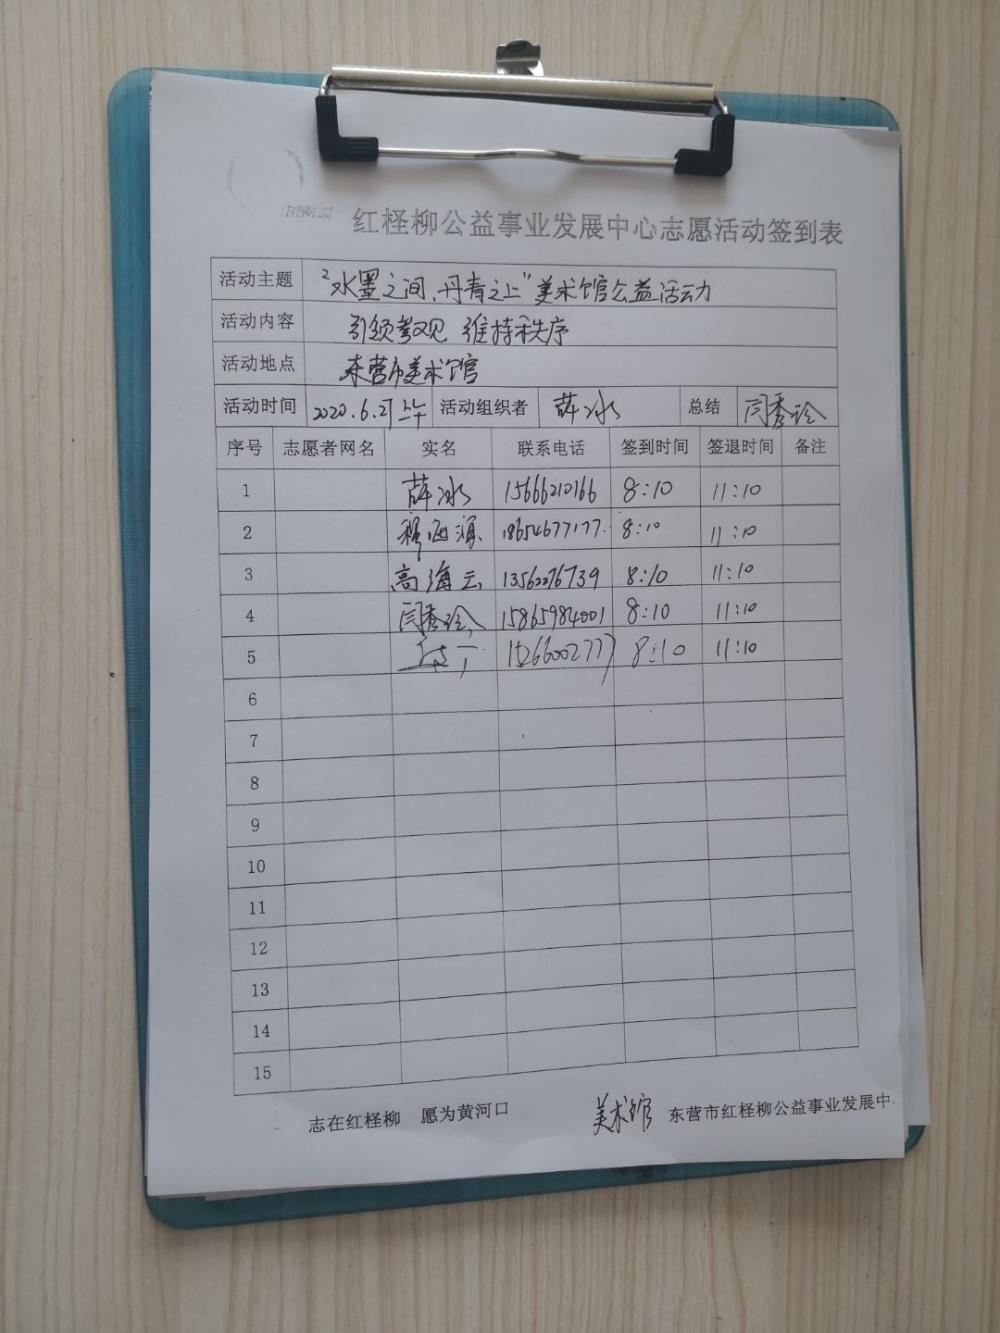 红柽柳公益事业发展中心志愿活动签到表
活动主题 “水墨之间,丹青之上”美术馆公益活动
活动内容 引领参观 维持秩序
活动地点 东营市美术馆
活动时间 2020.6.27上午 活动组织者 薛冰 总结 闫秀玲
序号 志愿者网名 实名 联系电话 签到时间 签退时间 备注
1 薛冰 15666210166 8:10 11:10
2 18654677177 8:10 11:10
3 高海云 13562276739 8:10 11:10
4 闫秀玲 15865984001 8:10 11:10
5 15266002777 8:10 11:10
6
7
8
9
10
11
12
13
14
15
志在红柽柳 愿为黄河口 美术馆 东营市红柽柳公益事业发展中